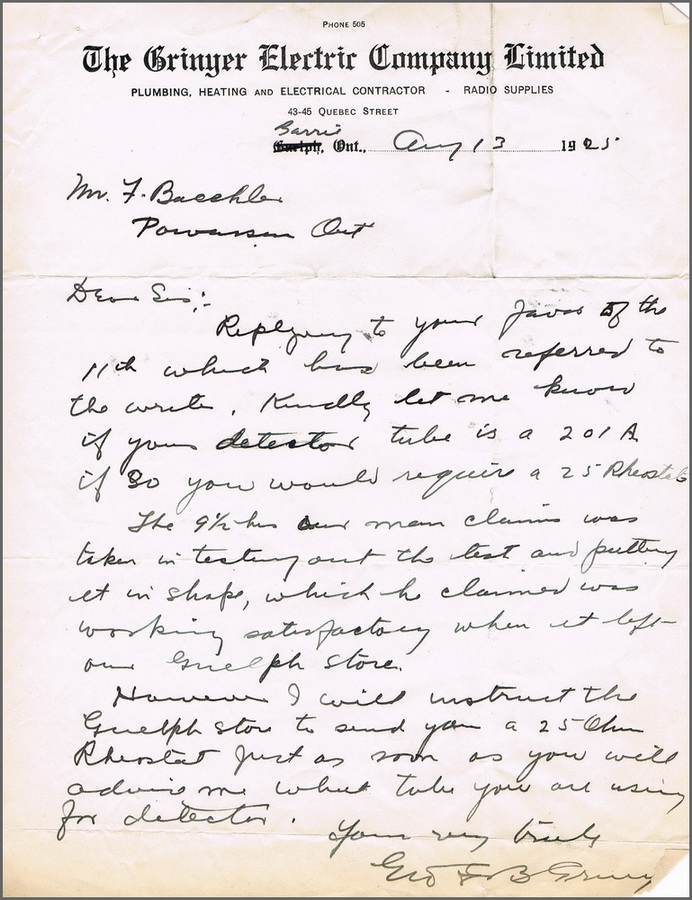 PHONE 505
The Grinyer Electric Company Limited
PLUMBING, HEATING AND ELECTRICAL CONTRACTOR - RADIO SUPPLIES
43-45 QUEBEC STREET
Barrie
Guelph, Ont., Aug 13 1925
Mr. F. Baechler
Powassan Ont
Dear Sir:-
Replying to your favor of the
11th which has been referred to
the writer. Kindly let me know
if your detector tube is a 201A
if so you would require a 25 Rheostat
The 9½ hrs our man claims was
taken in testing out the test and putting
it in shape, which he claimed was
working satisfactory when it left
our Guelph Store.
However I will instruct the
Guelph Store to send you a 25 Ohm
Rheostat just as soon as you will
advise me what tube you are using
for detector.
Yours very truly
Geo F B Griny